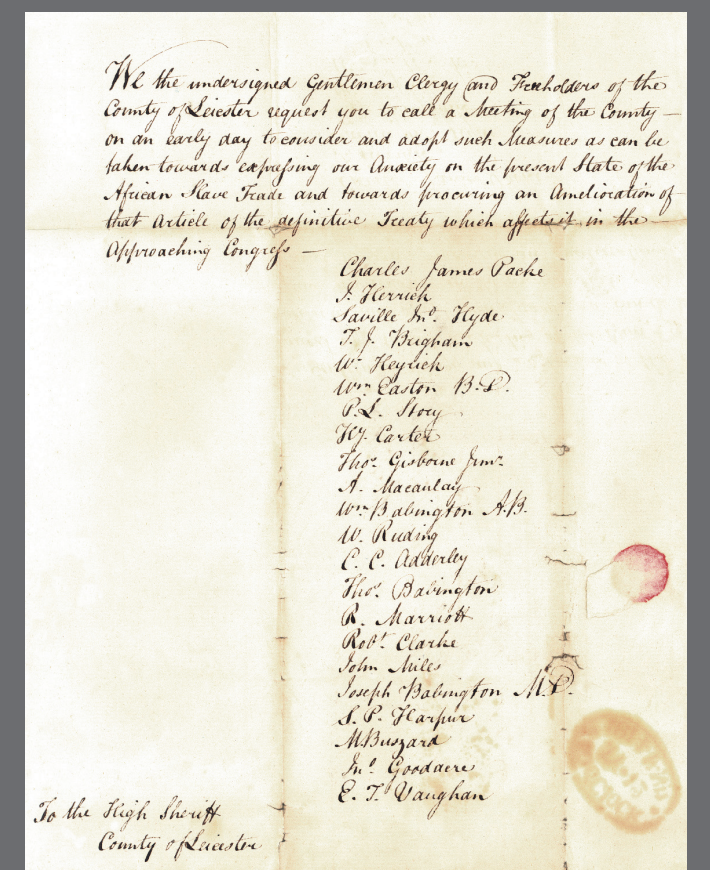 We the undersigned Gentlemen Clergy and Freeholders of the
County of Leicester request you to call a Meeting of the County —
on an early day to consider and adopt such Measures as can be
taken towards expressing our Anxiety on the present State of the
African Slave Trade and towards procuring an Amelioration of
that Article of the definitive Treaty which affects it in the
Approaching Congress —
Charles James Packe
J. Herrick
Saville Jno. Hyde
T. J. Brigham
Wm. Heyrick
Wm Easton B.D.
P. L. Story
Wy. Carter
Thos. Gisborne Junr.
A. Macaulay
Wm Babington A.B.
W. Ruding
C. C. Adderley
Thos. Babington
R. Marriott
Robt. Clarke
John Miles
Joseph Babington M.D.
S. P. Harpur
M. Buszard
Jno. Goodacre
E. T. Vaughan
To the High Sheriff
County of Leicester